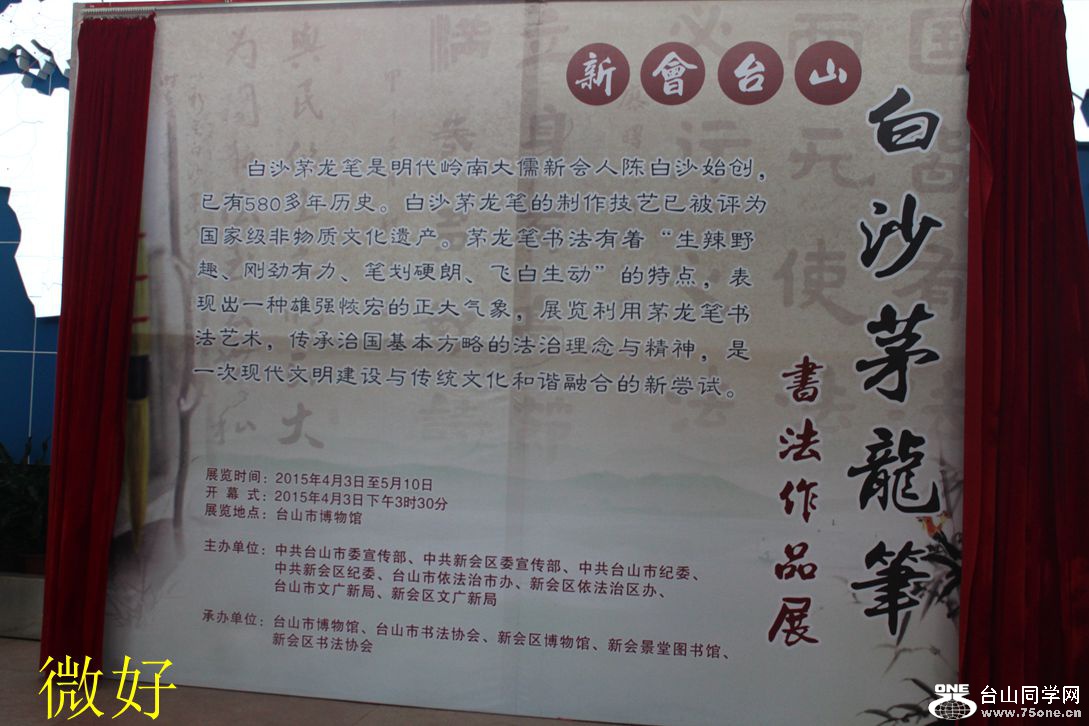 新會台山
白沙茅龍筆
書法作品展
白沙茅龙笔是明代岭南大儒新会人陈白沙始创，
已有580多年历史。白沙茅龙笔的制作技艺已被评为
国家级非物质文化遗产。茅龙笔书法有着“生辣野
趣、刚劲有力、笔划硬朗、飞白生动”的特点，表
现出一种雄强恢宏的正大气象，展览利用茅龙笔书
法艺术，传承治国基本方略的法治理念与精神，是
一次现代文明建设与传统文化和谐融合的新尝试。
展览时间：2015年4月3日至5月10日
开 幕 式：2015年4月3日下午3时30分
展览地点：台山市博物馆
主办单位：中共台山市委宣传部、中共新会区委宣传部、中共台山市纪委、
中共新会区纪委、台山市依法治市办、新会区依法治区办、
台山市文广新局、新会区文广新局
承办单位：台山市博物馆、台山市书法协会、新会区博物馆、新会景堂图书馆、
新会区书法协会
微好
ONE 台山同学网
www.75one.cn